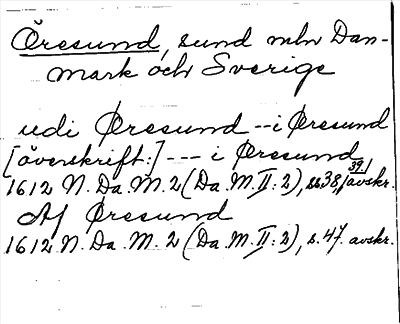 Öresund, sund mln Dan-
mark och Sverige
udi Øresund -- i Øresund
[överskrift:] --- i Øresund
1612 N. Da. M. 2 (Da. M. II: 2), ss. 38, 39, avskr.
Af Øresund
1612 N. Da. M. 2 (Da. M. II: 2), s. 47. avskr.